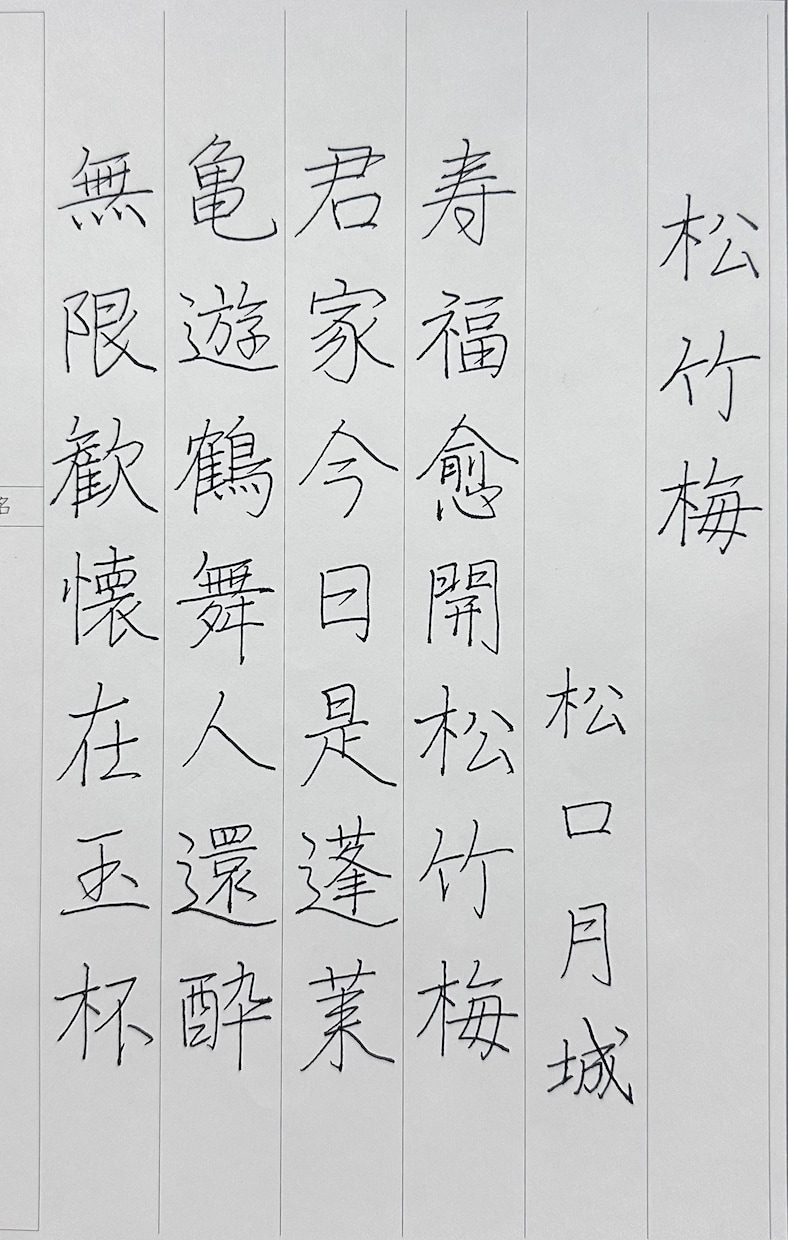 松竹梅
松口月城
寿福愈開松竹梅
君家今日是蓬莱
亀遊鶴舞人還酔
無限歓懐在玉杯
名